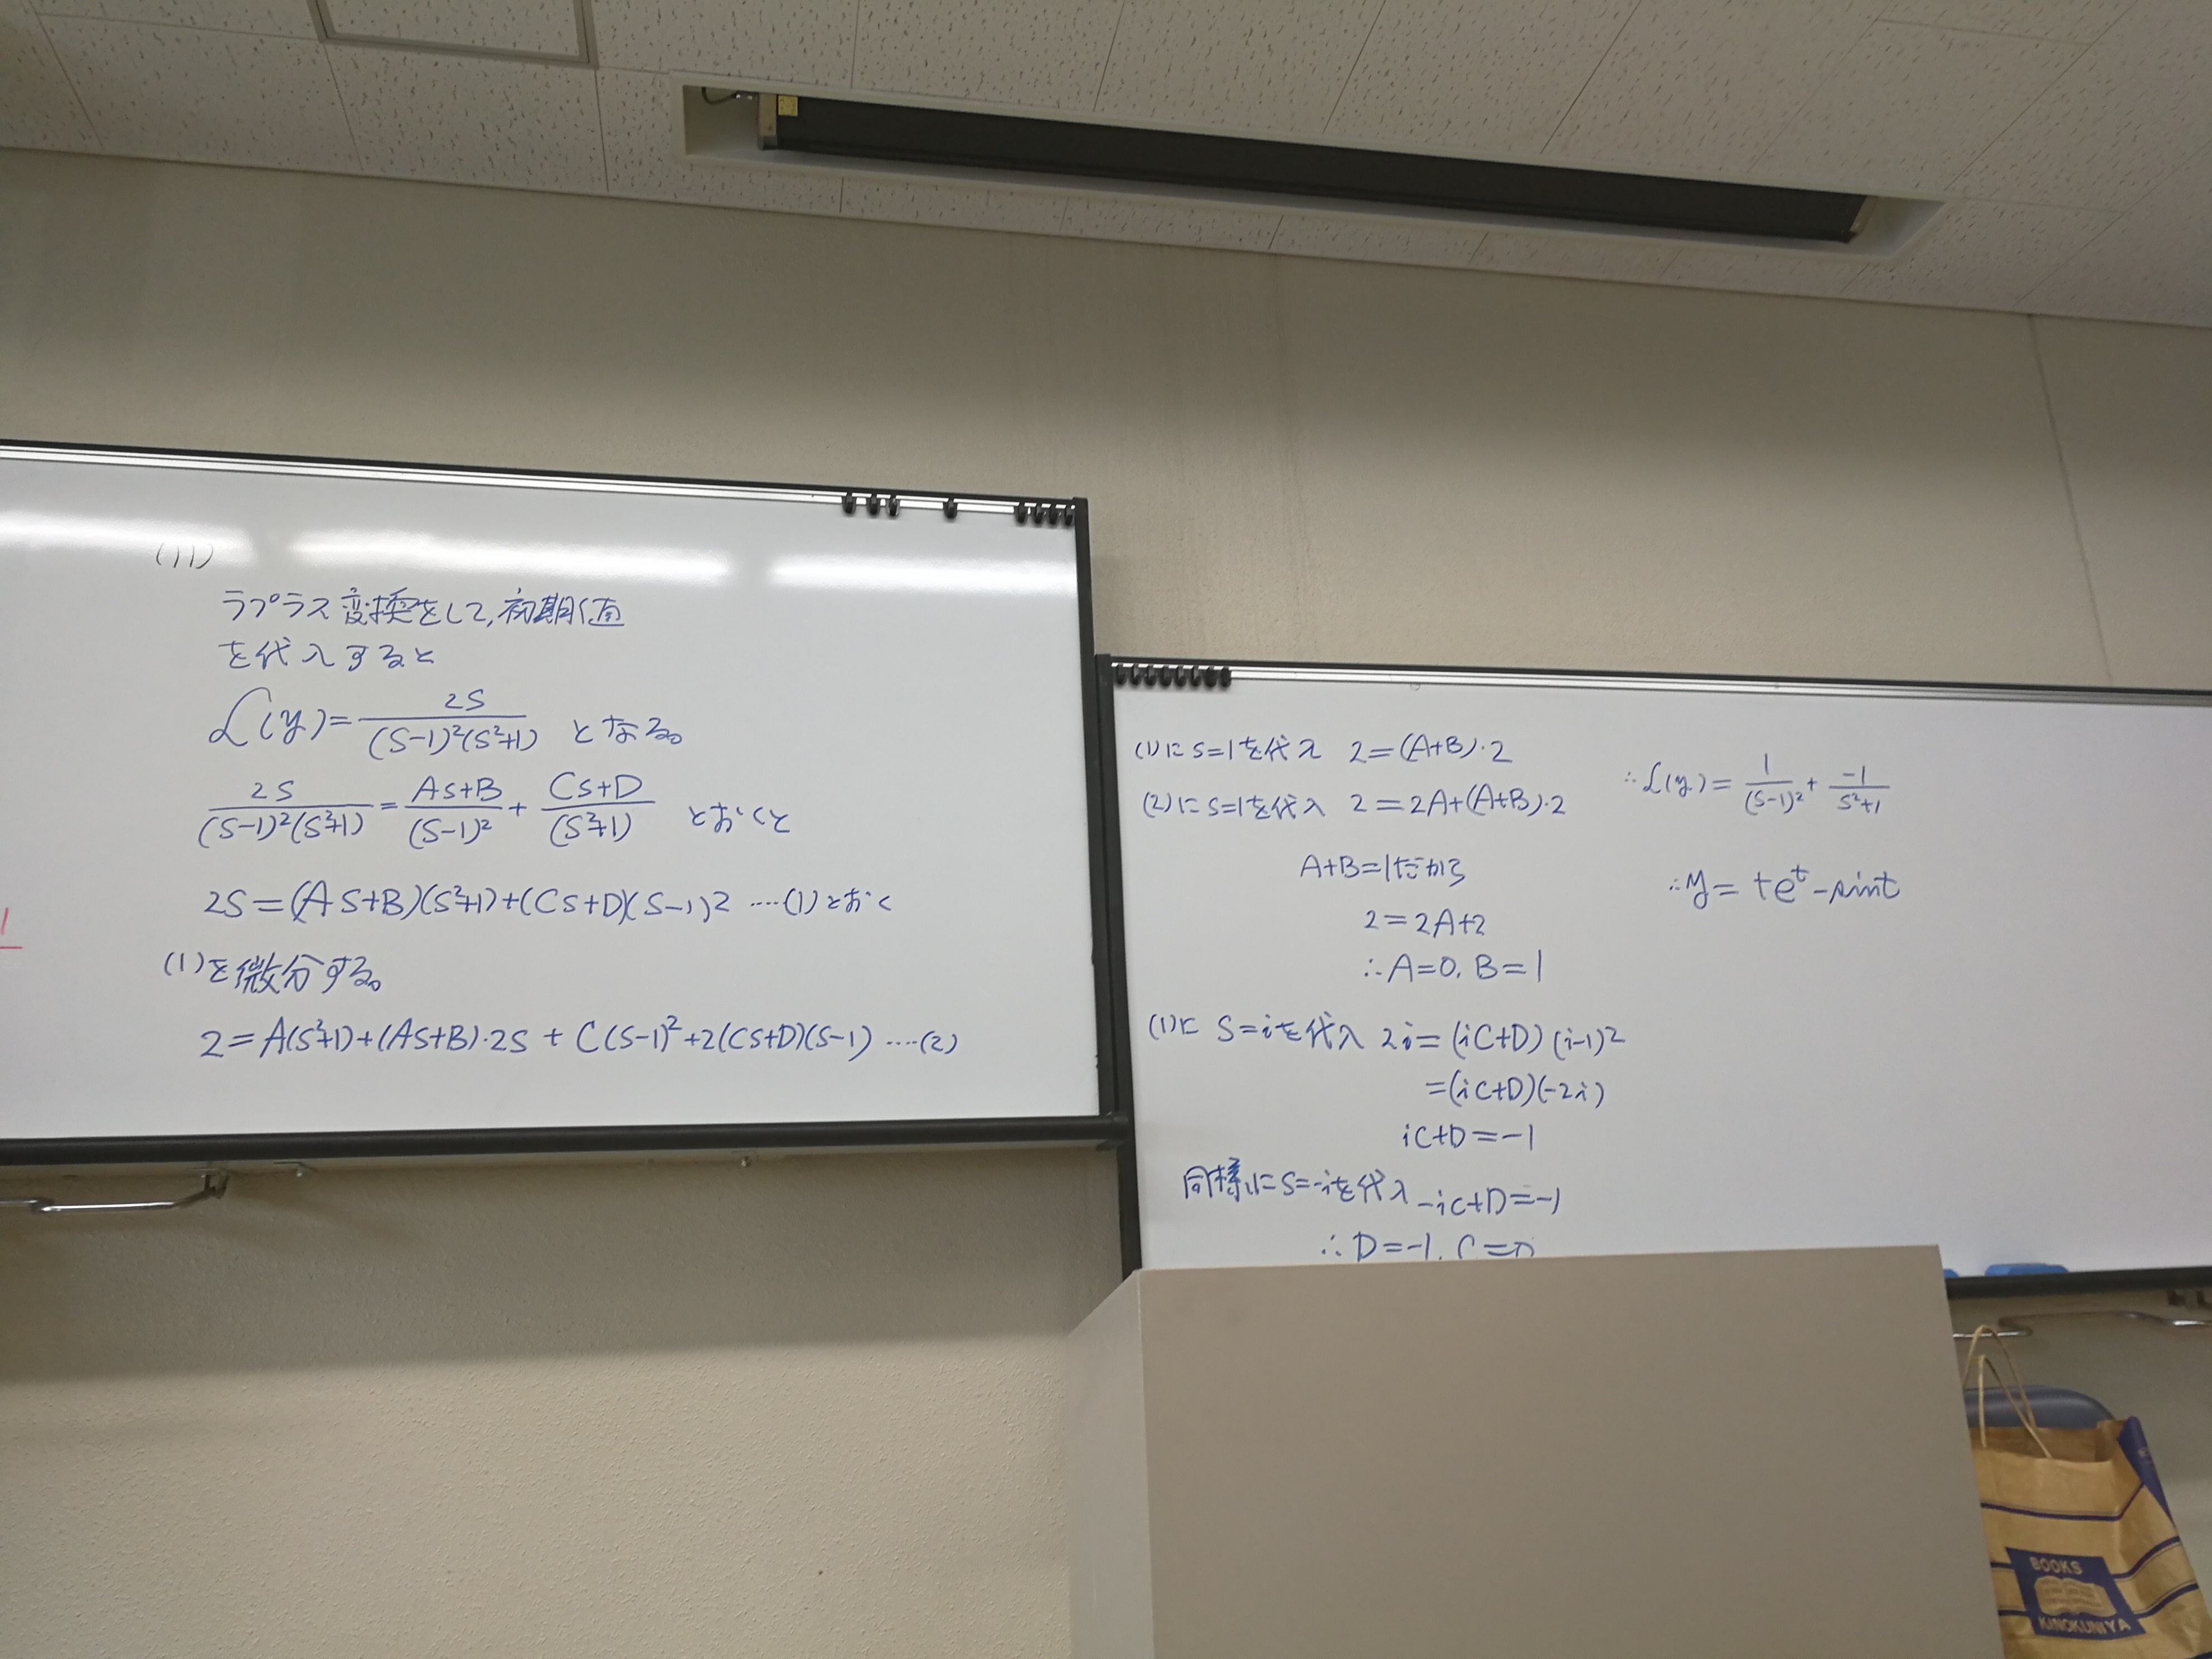 (11)
ラプラス変換をして,初期値
を代入すると
ℒ(y)=2S/(S-1)²(S²+1) となる。
2S/(S-1)²(S²+1) = AS+B/(S-1)² + CS+D/(S²+1) とおくと
2S=(AS+B)(S²+1)+(CS+D)(S-1)2 ····(1)とおく
(1)を微分する。
2=A(S²+1)+(AS+B)·2S+C(S-1)²+2(CS+D)(S-1) ····(2)
1
(1)にS=1を代入 2=(A+B)·2
(2)にS=1を代入 2=2A+(A+B)·2
A+B=1だから
2=2A+2
∴A=0. B=1
(1)に S=iを代入 2i=(iC+D)(i-1)²
=(iC+D)(-2i)
iC+D=-1
同様にS=-iを代入 -iC+D=-1
∴D=-1. C=0
∴ℒ(y)=1/(S-1)² + -1/S²+1
∴y=te^t-sint
BOOKS
KINOKUNIYA